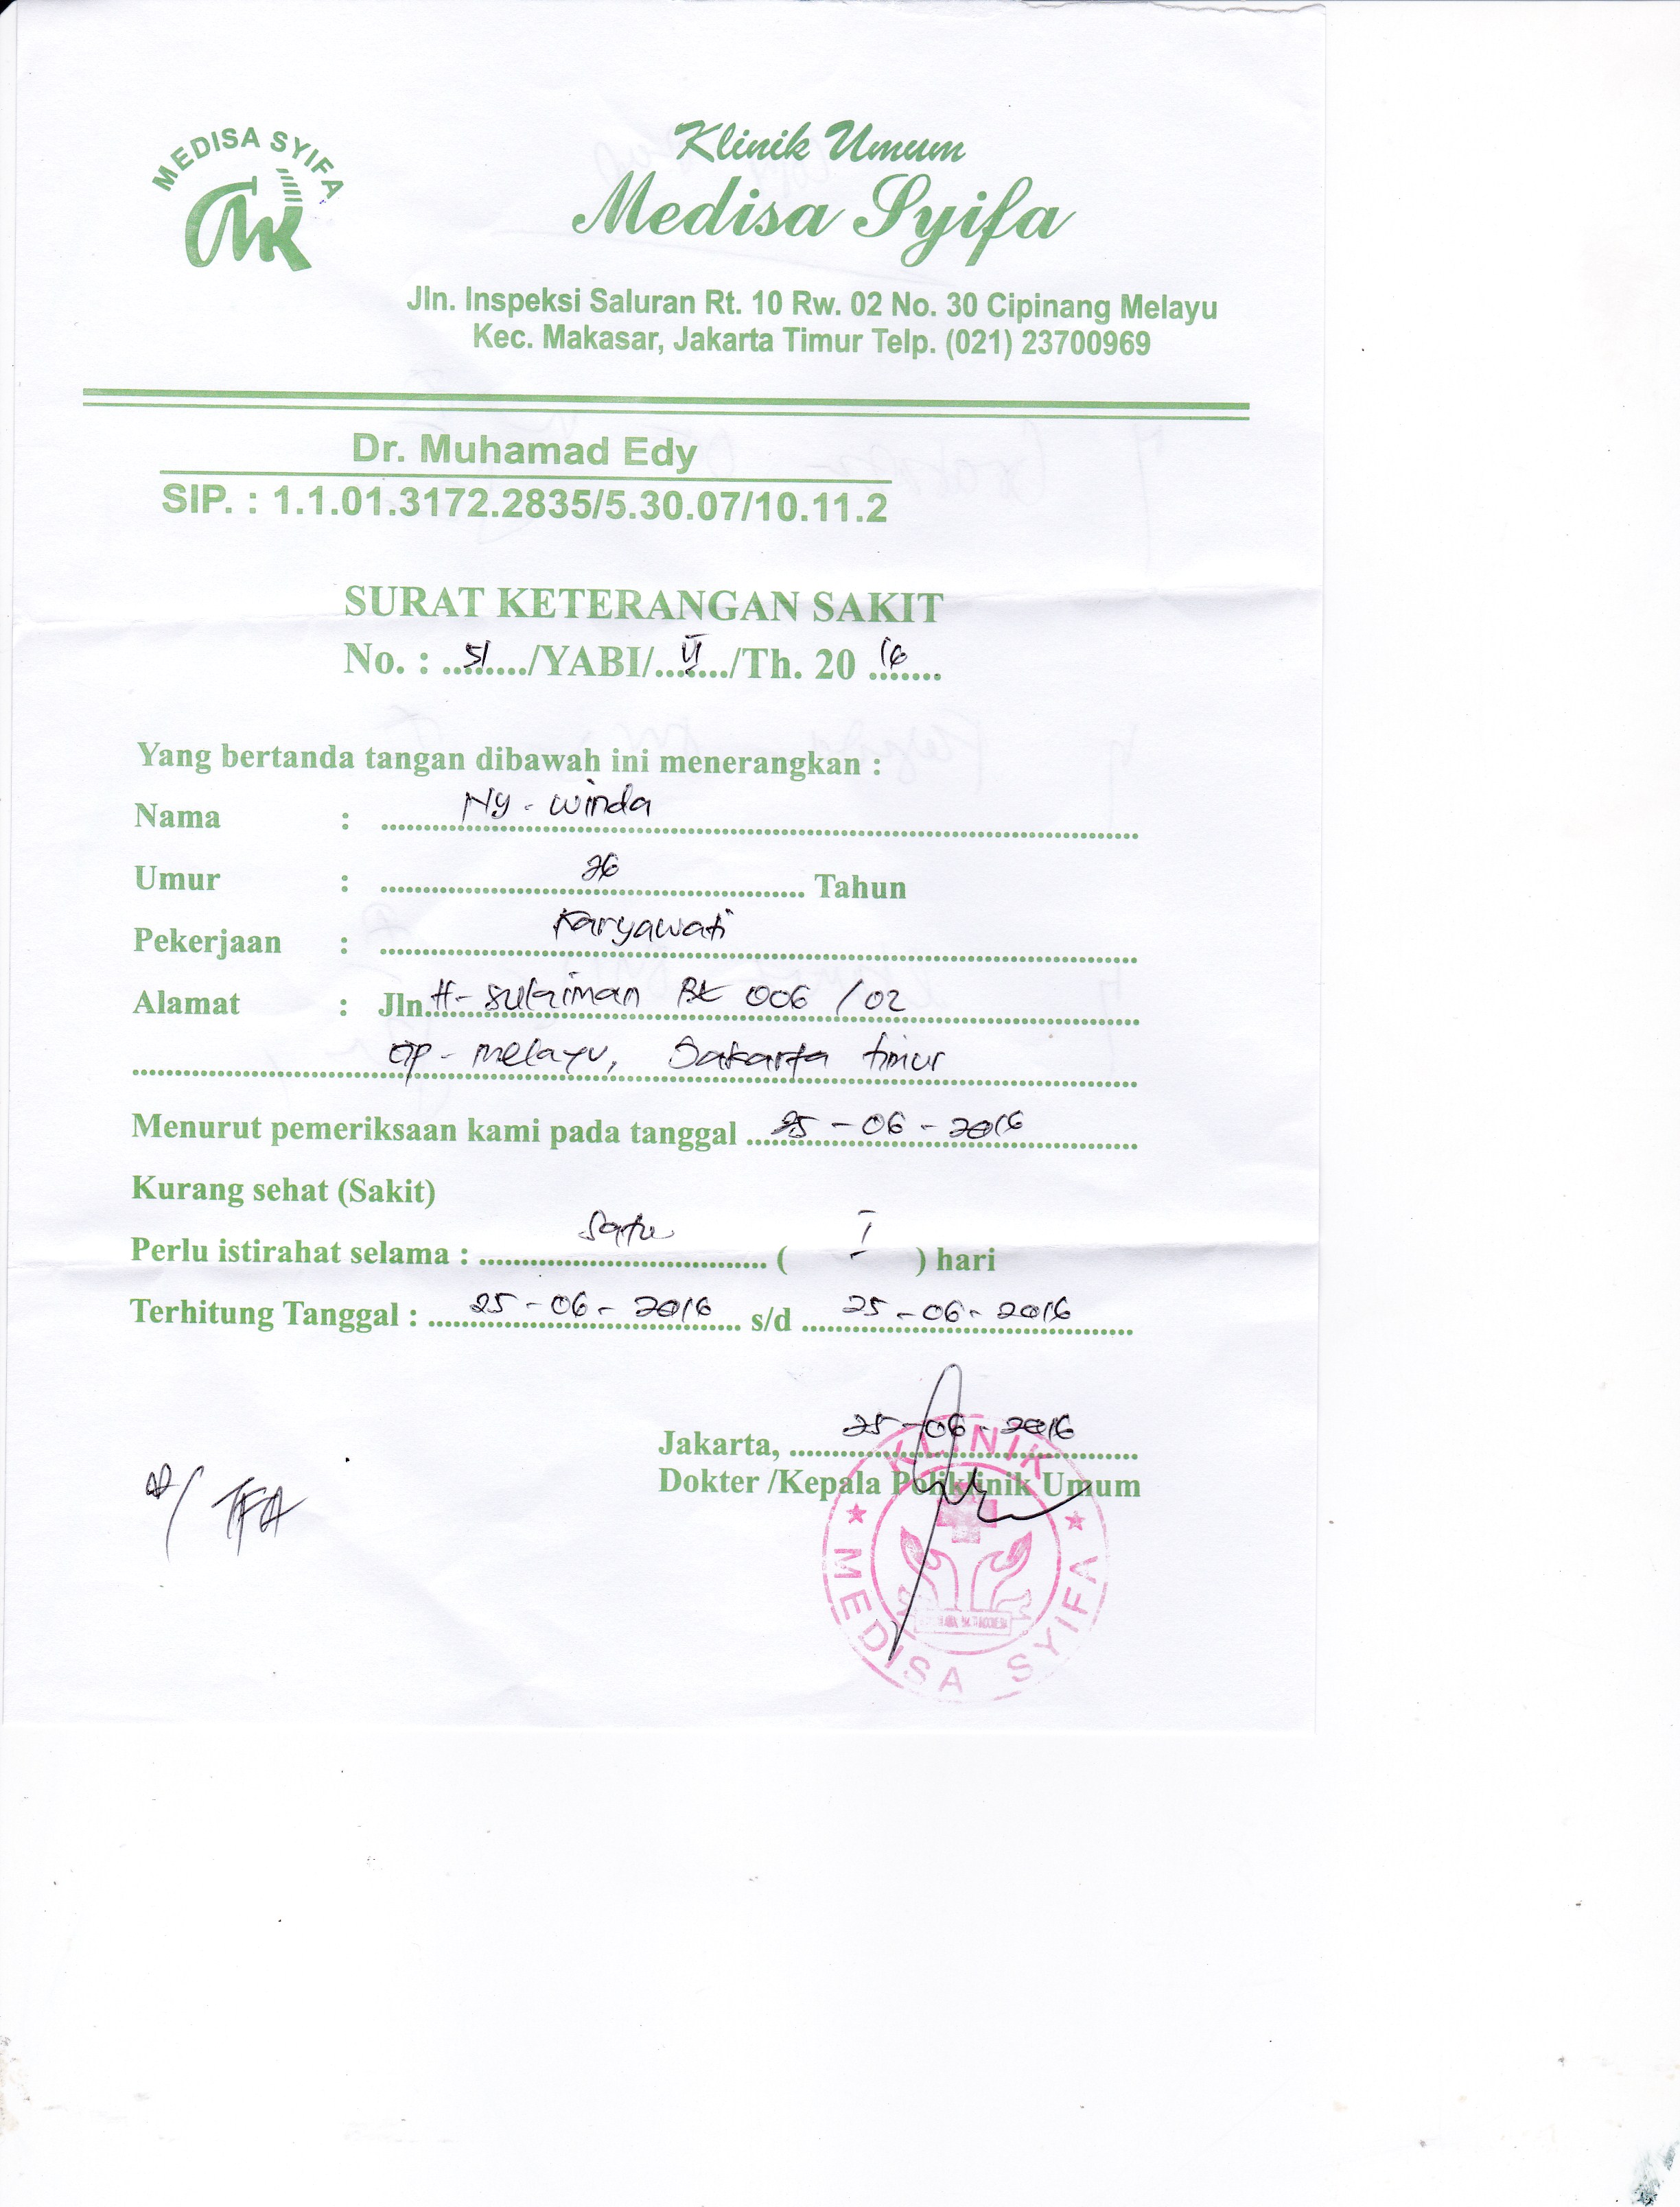 MEDISA SYIFA
Klinik Umum
Medisa Syifa
Jln. Inspeksi Saluran Rt. 10 Rw. 02 No. 30 Cipinang Melayu
Kec. Makasar, Jakarta Timur Telp. (021) 23700969
Dr. Muhamad Edy
SIP. : 1.1.01.3172.2835/5.30.07/10.11.2
SURAT KETERANGAN SAKIT
No. : ..51...../YABI/...VI..../Th. 20 16
Yang bertanda tangan dibawah ini menerangkan :
Nama : Ny. Winda
Umur : 26 Tahun
Pekerjaan : Karyawati
Alamat : Jln. H. Sulaiman Rt 006 / 02
Cip. Melayu, Jakarta timur
Menurut pemeriksaan kami pada tanggal 25 - 06 - 2016
Kurang sehat (Sakit)
Perlu istirahat selama : Satu ( I ) hari
Terhitung Tanggal : 25 - 06 - 2016 s/d 25 - 06 - 2016
Jakarta, 25 - 06 - 2016
Dokter /Kepala Poliklinik Umum
KLINIK
MEDISA SYIFA